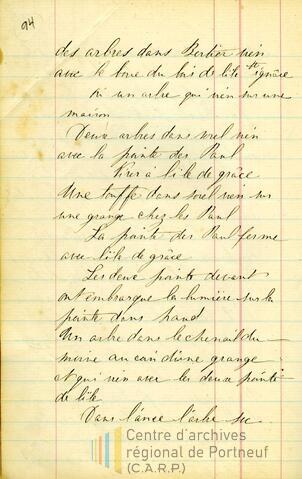 94
des arbres dans Bertier vien
avec le boue du bois de l'ile st ignâce
Ai un arbre qui vien sur une
maison
Deux arbres dans vien
avec la pointe des Paul
Virer à l'ile de grâce
Une touffe dans sorel vien sur
une grange chez les Paul
La pointe des Paul ferme
avec l'ile de grâce
Les deux pointe devant
ont embarque la lumière sur la
pointe dans
Un arbre dans le chenail du
moine au coin d'une grange
et qui vien avec les deux pointe
de l'ile
Dans l'ance l'arbre sec
Centre d'archives
régional de Portneuf
(C.A.R.P.)